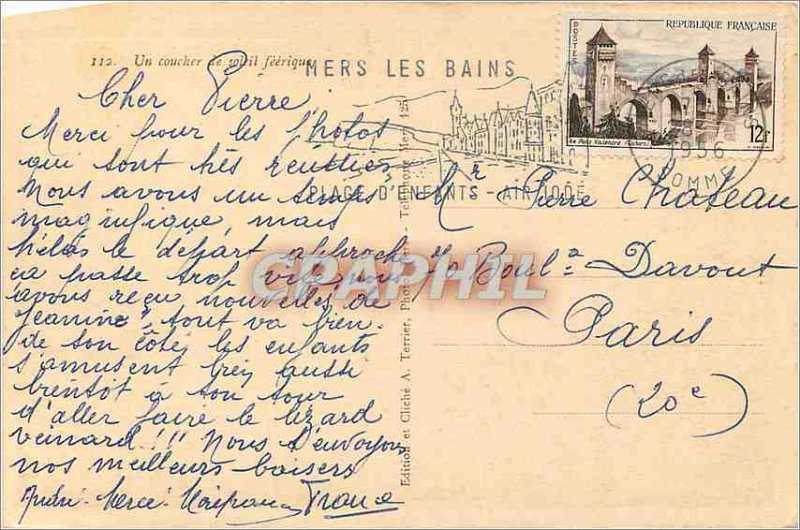 112. Un coucher de soleil féerique
MERS LES BAINS
PLAGE D'ENFANTS - AIR IODÉ
RÉPUBLIQUE FRANÇAISE
POSTES
Le Pont Valentré (Cahors)
12F
1956
SOMME
Cher Pierre
Merci pour les photos
qui sont très réussies
Nous avons un temps
magnifique, mais
hélas le départ approche
ça passe trop vite, nous
avons reçu nouvelles de
Jeanine, tout va bien.
de son côté, les enfants
s'amusent bien, aussi
bientôt à ton tour
d'aller faire le lézard
veinard!!! Nous t'envoyons
nos meilleurs baisers
France
Mr Pierre Chateau
Boul.a Davout
Paris
(20e)
Edition et Cliché A. Terrier, Photo - Téléphone Mers 125
CPAPHIL